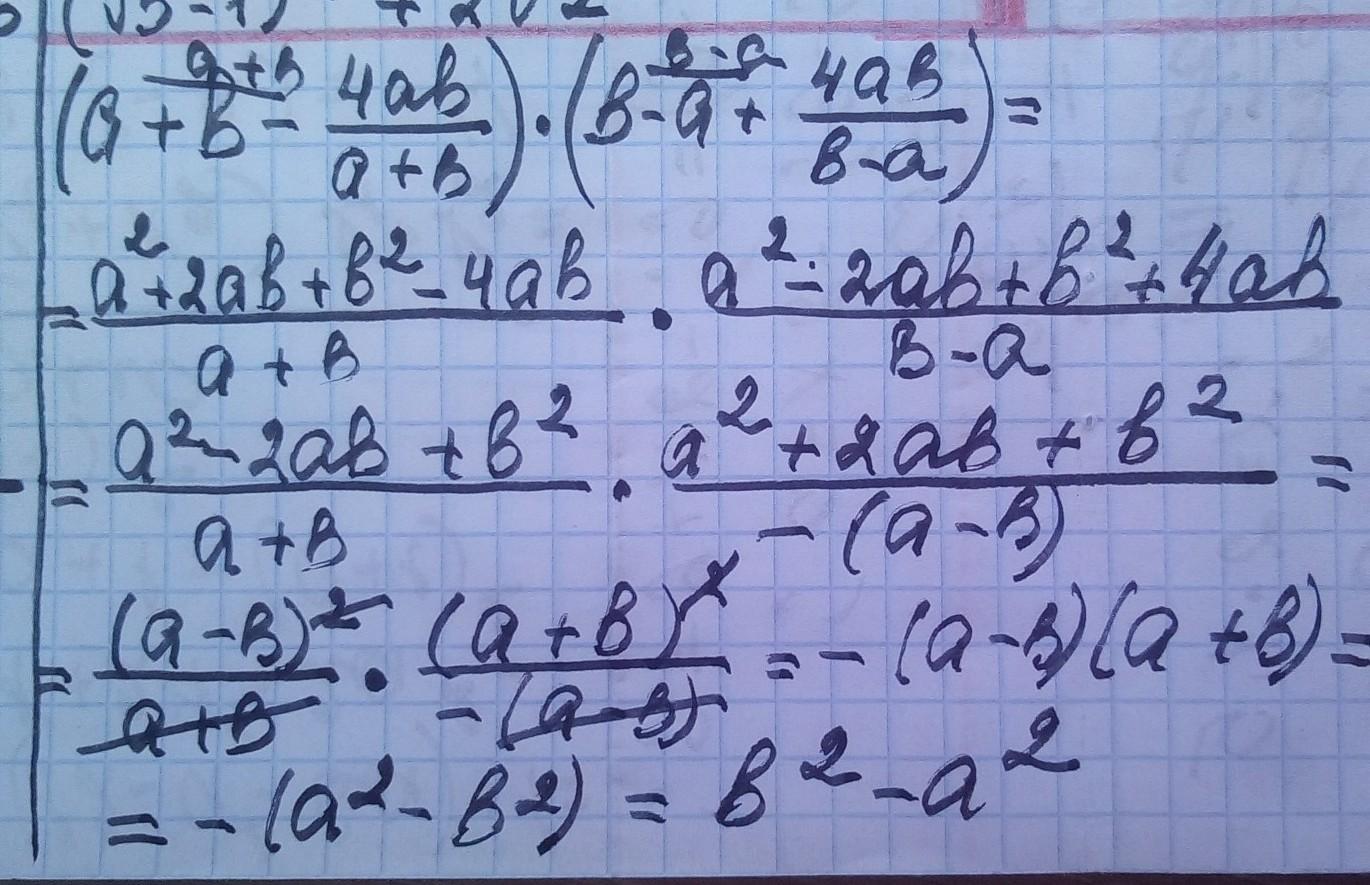 (√3-1) + 2√2
a+b b-a
(a + b - 4ab/(a+b)) · (b-a + 4ab/(b-a)) =
= (a²+2ab+b²-4ab)/(a+b) · (a²-2ab+b²+4ab)/(b-a)
= (a²-2ab+b²)/(a+b) · (a²+2ab+b²)/(-(a-b)) =
= (a-b)²/(a+b) · (a+b)²/(-(a-b)) = -(a-b)(a+b) =
= -(a²-b²) = b²-a²